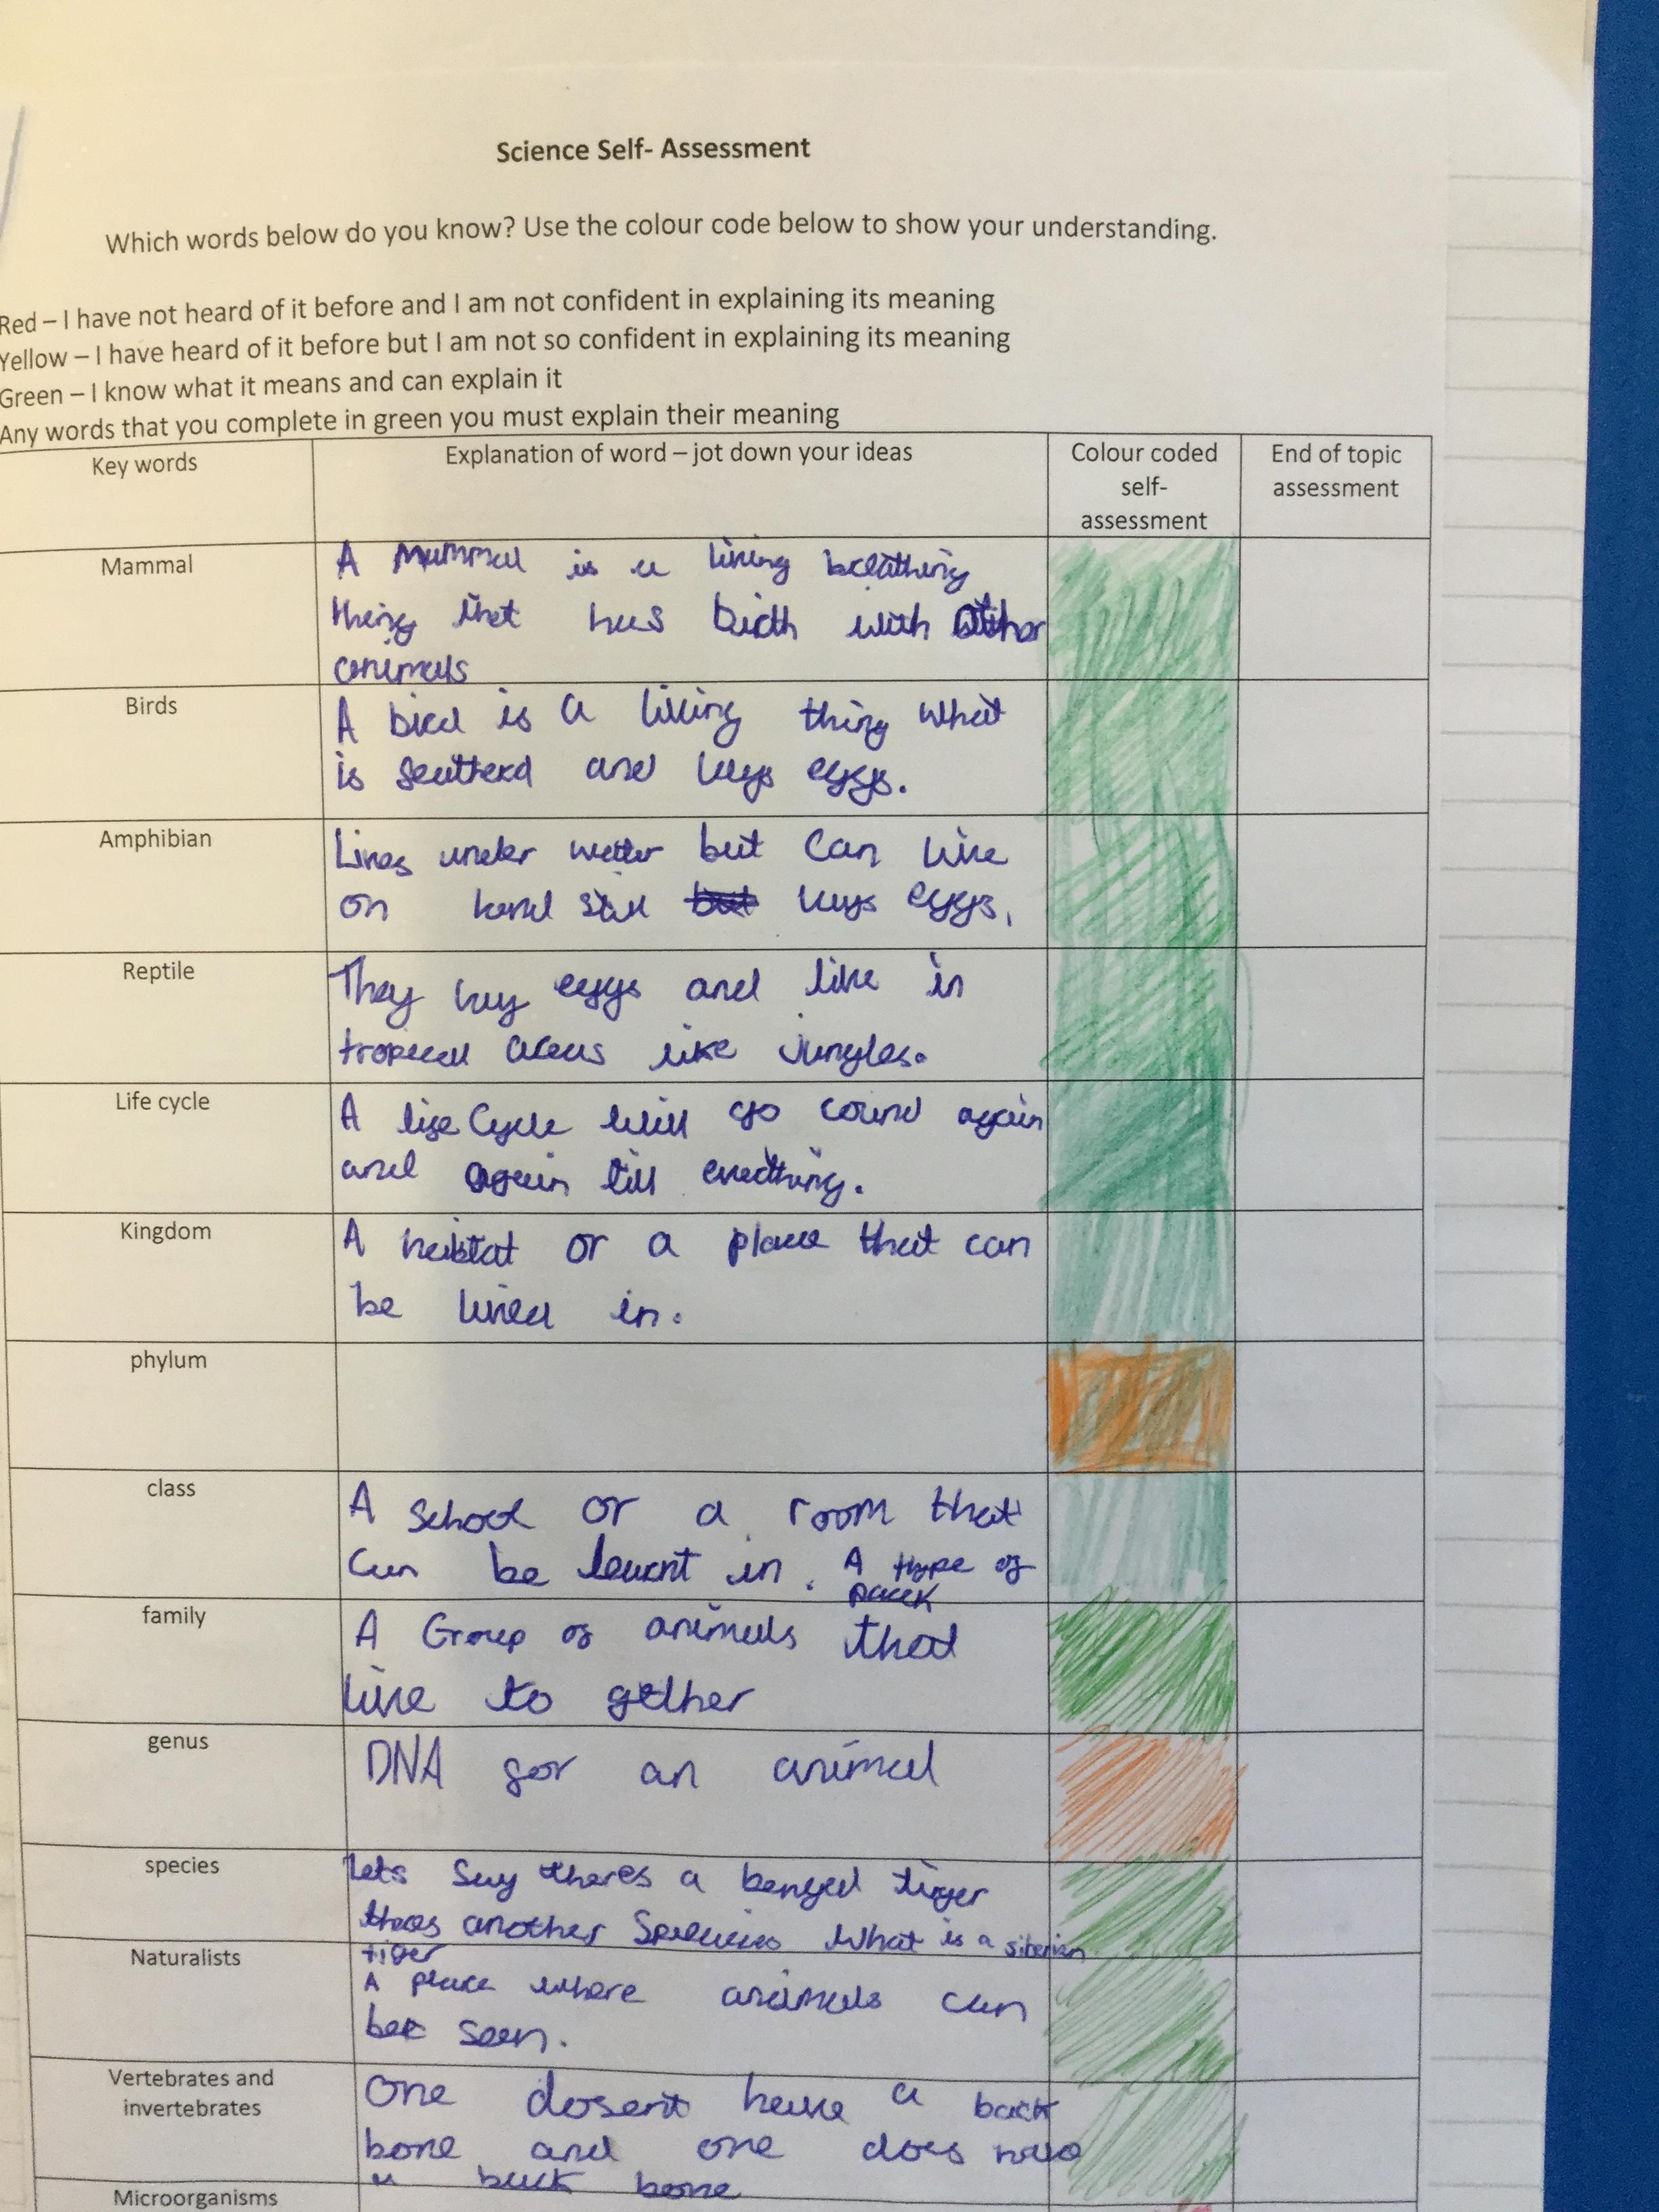 Science Self- Assessment
Which words below do you know? Use the colour code below to show your understanding.
Red – I have not heard of it before and I am not confident in explaining its meaning
Yellow – I have heard of it before but I am not so confident in explaining its meaning
Green – I know what it means and can explain it
Any words that you complete in green you must explain their meaning
Key words
Explanation of word – jot down your ideas
Colour coded
self-
assessment
End of topic
assessment
Mammal
A Mammal is a living breathing
thing that has birth with other
animals
Birds
A bird is a living thing what
is featherd and lays eggs.
Amphibian
Lives under water but can live
on land still but lays eggs.
Reptile
They lay eggs and live in
tropical areas like jungles.
Life cycle
A life Cycle will go round again
and again till everthing.
Kingdom
A habitat or a place that can
be lived in.
phylum
class
A School or a room that
can be learnt in. A type of
pack
family
A Group of animals that
live to gether
genus
DNA for an animal
species
lets Say theres a bengal tiger
theres another Species what is a siberian
tiger
Naturalists
A place where animals can
bee seen.
Vertebrates and
invertebrates
One dosent have a back
bone and one does have
a back bone
Microorganisms